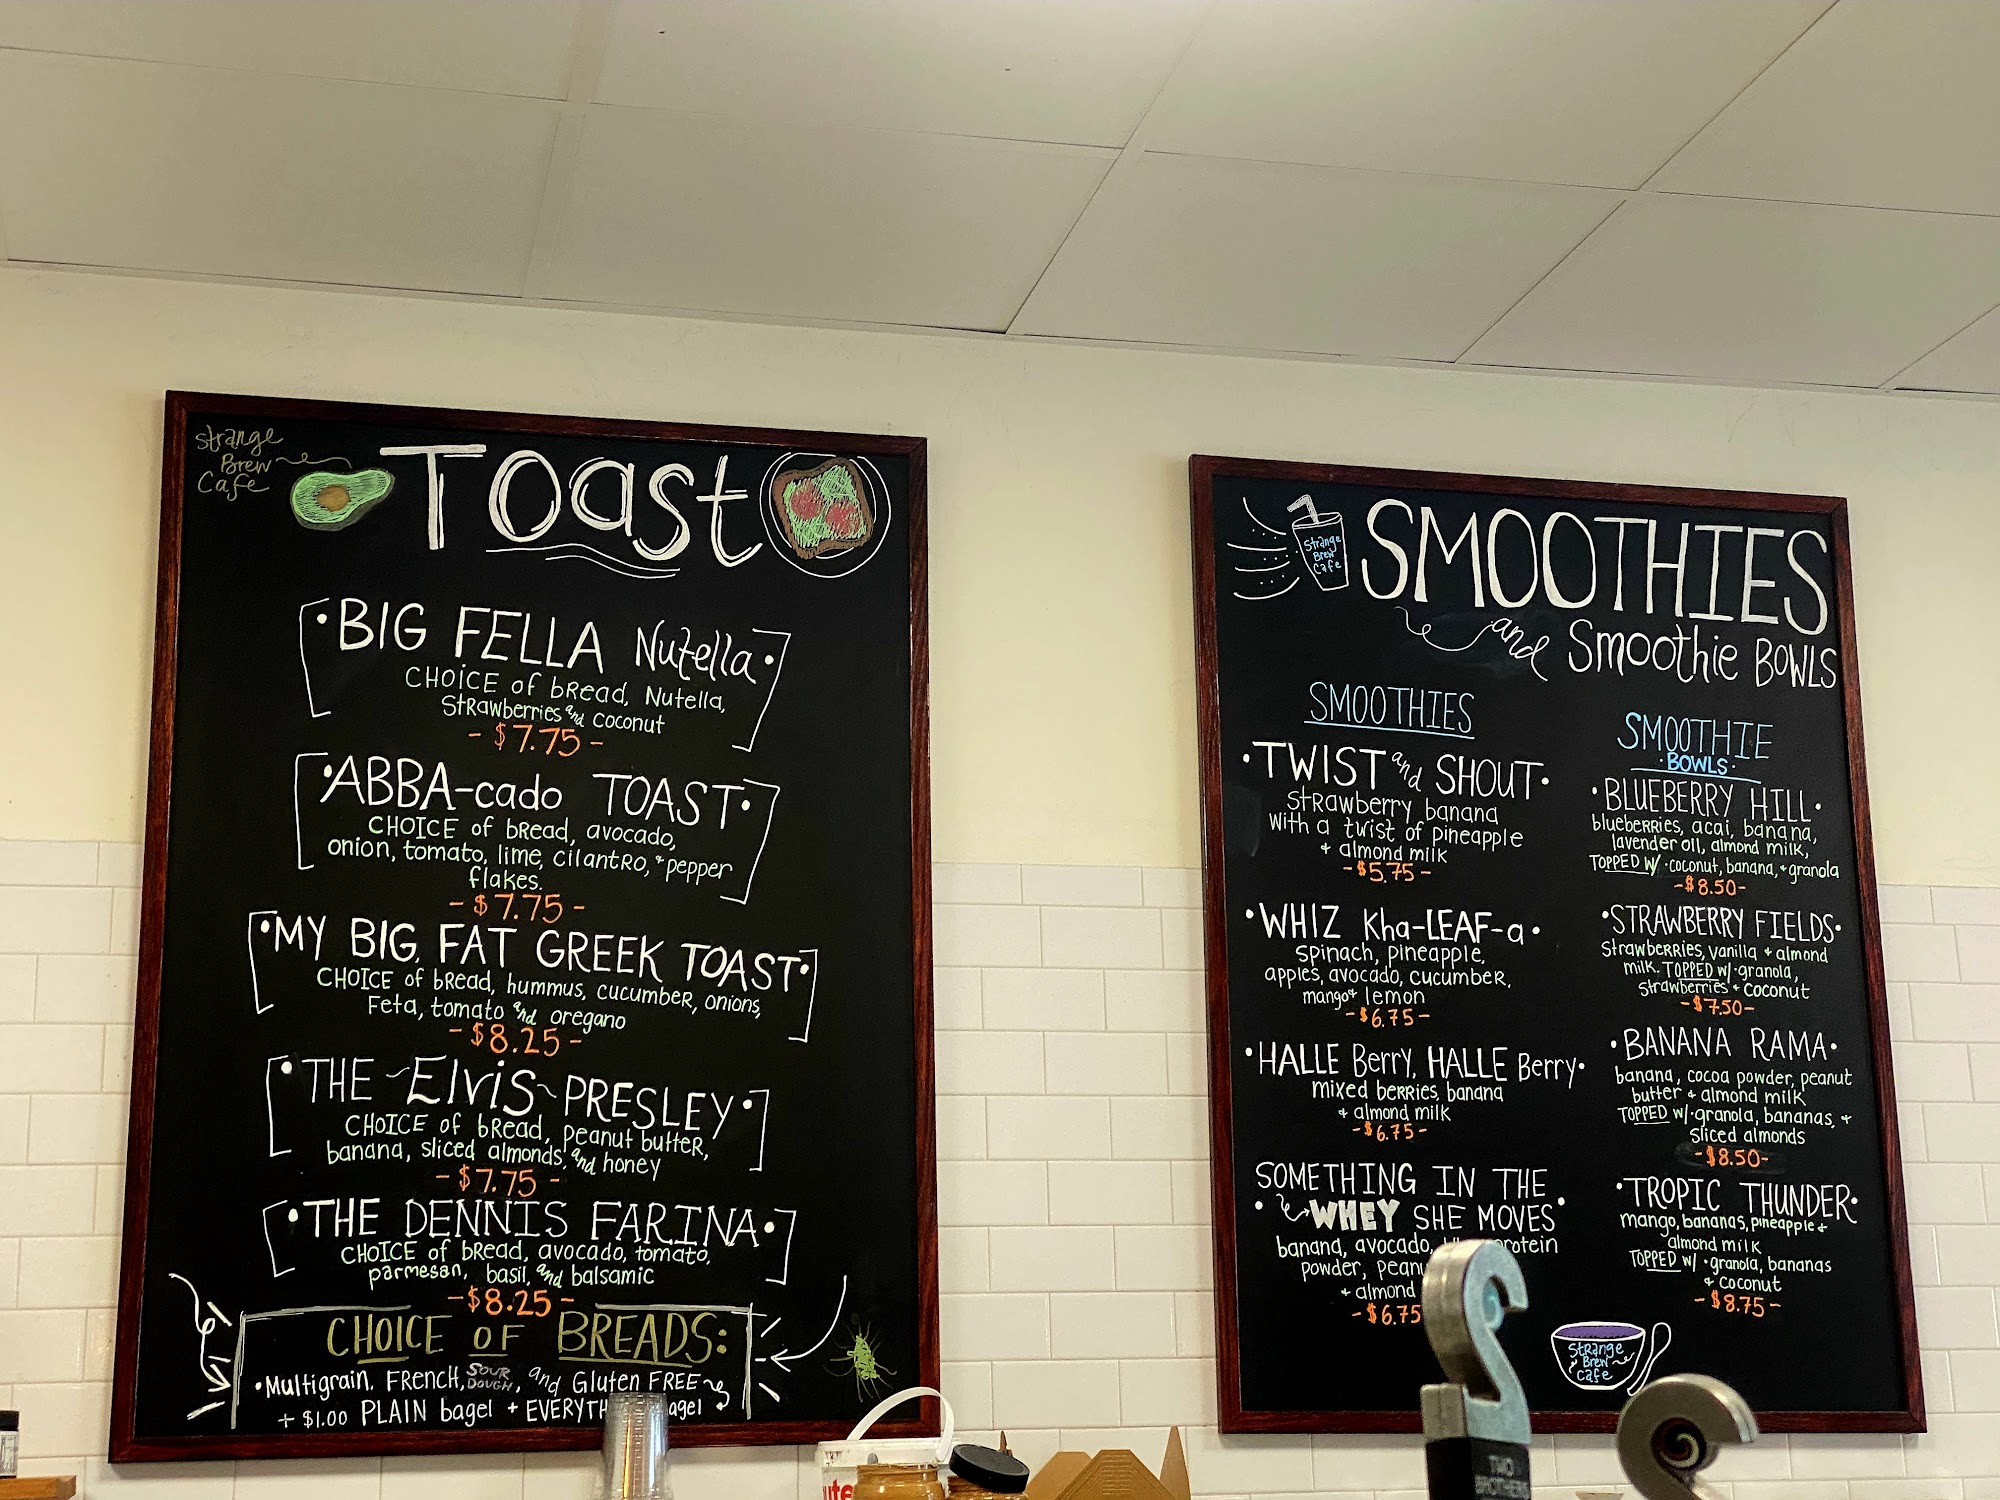 Strange
Brew
Cafe
Toast
• BIG FELLA Nutella •
CHOICE of bread, Nutella,
Strawberries and coconut
- $7.75 -
• ABBA-cado TOAST •
CHOICE of bread, avocado,
onion, tomato, lime, cilantro, + pepper
flakes.
- $7.75 -
• MY BIG FAT GREEK TOAST •
CHOICE of bread, hummus, cucumber, onions,
Feta, tomato and oregano
- $8.25 -
• THE ~Elvis~ PRESLEY •
CHOICE of bread, peanut butter,
banana, sliced almonds, and honey
- $7.75 -
• THE DENNIS FARINA •
CHOICE of bread, avocado, tomato,
parmesan, basil, and balsamic
- $8.25 -
CHOICE OF BREADS:
• Multigrain, FRENCH, SOUR DOUGH, and Gluten FREE
+ $1.00 PLAIN bagel + EVERYTH agel
Strange
Brew
Cafe
SMOOTHIES
and Smoothie BOWLS
SMOOTHIES
• TWIST and SHOUT •
Strawberry banana
with a twist of pineapple
+ almond milk
- $5.75 -
• WHIZ Kha-LEAF-a •
Spinach, pineapple,
apples, avocado, cucumber,
mango + lemon
- $6.75 -
• HALLE Berry, HALLE Berry •
mixed berries, banana
+ almond milk
- $6.75 -
SOMETHING IN THE
• WHEY SHE MOVES •
banana, avocado, protein
powder, peanu
+ almond
- $6.75
SMOOTHIE
• BOWLS •
• BLUEBERRY HILL •
blueberries, acai, banana,
lavender oil, almond milk,
TOPPED W/ • coconut, banana, + granola
- $8.50 -
• STRAWBERRY FIELDS •
Strawberries, vanilla + almond
milk. TOPPED W/ • granola,
Strawberries + coconut
- $7.50 -
• BANANA RAMA •
banana, cocoa powder, peanut
butter + almond milk
TOPPED W/ • granola, bananas, +
Sliced almonds
- $8.50 -
• TROPIC THUNDER •
mango, bananas, pineapple +
almond milk
TOPPED W/ • granola, bananas
+ coconut
- $8.75 -
Strange
Brew
Cafe
TWO
BROTHERS